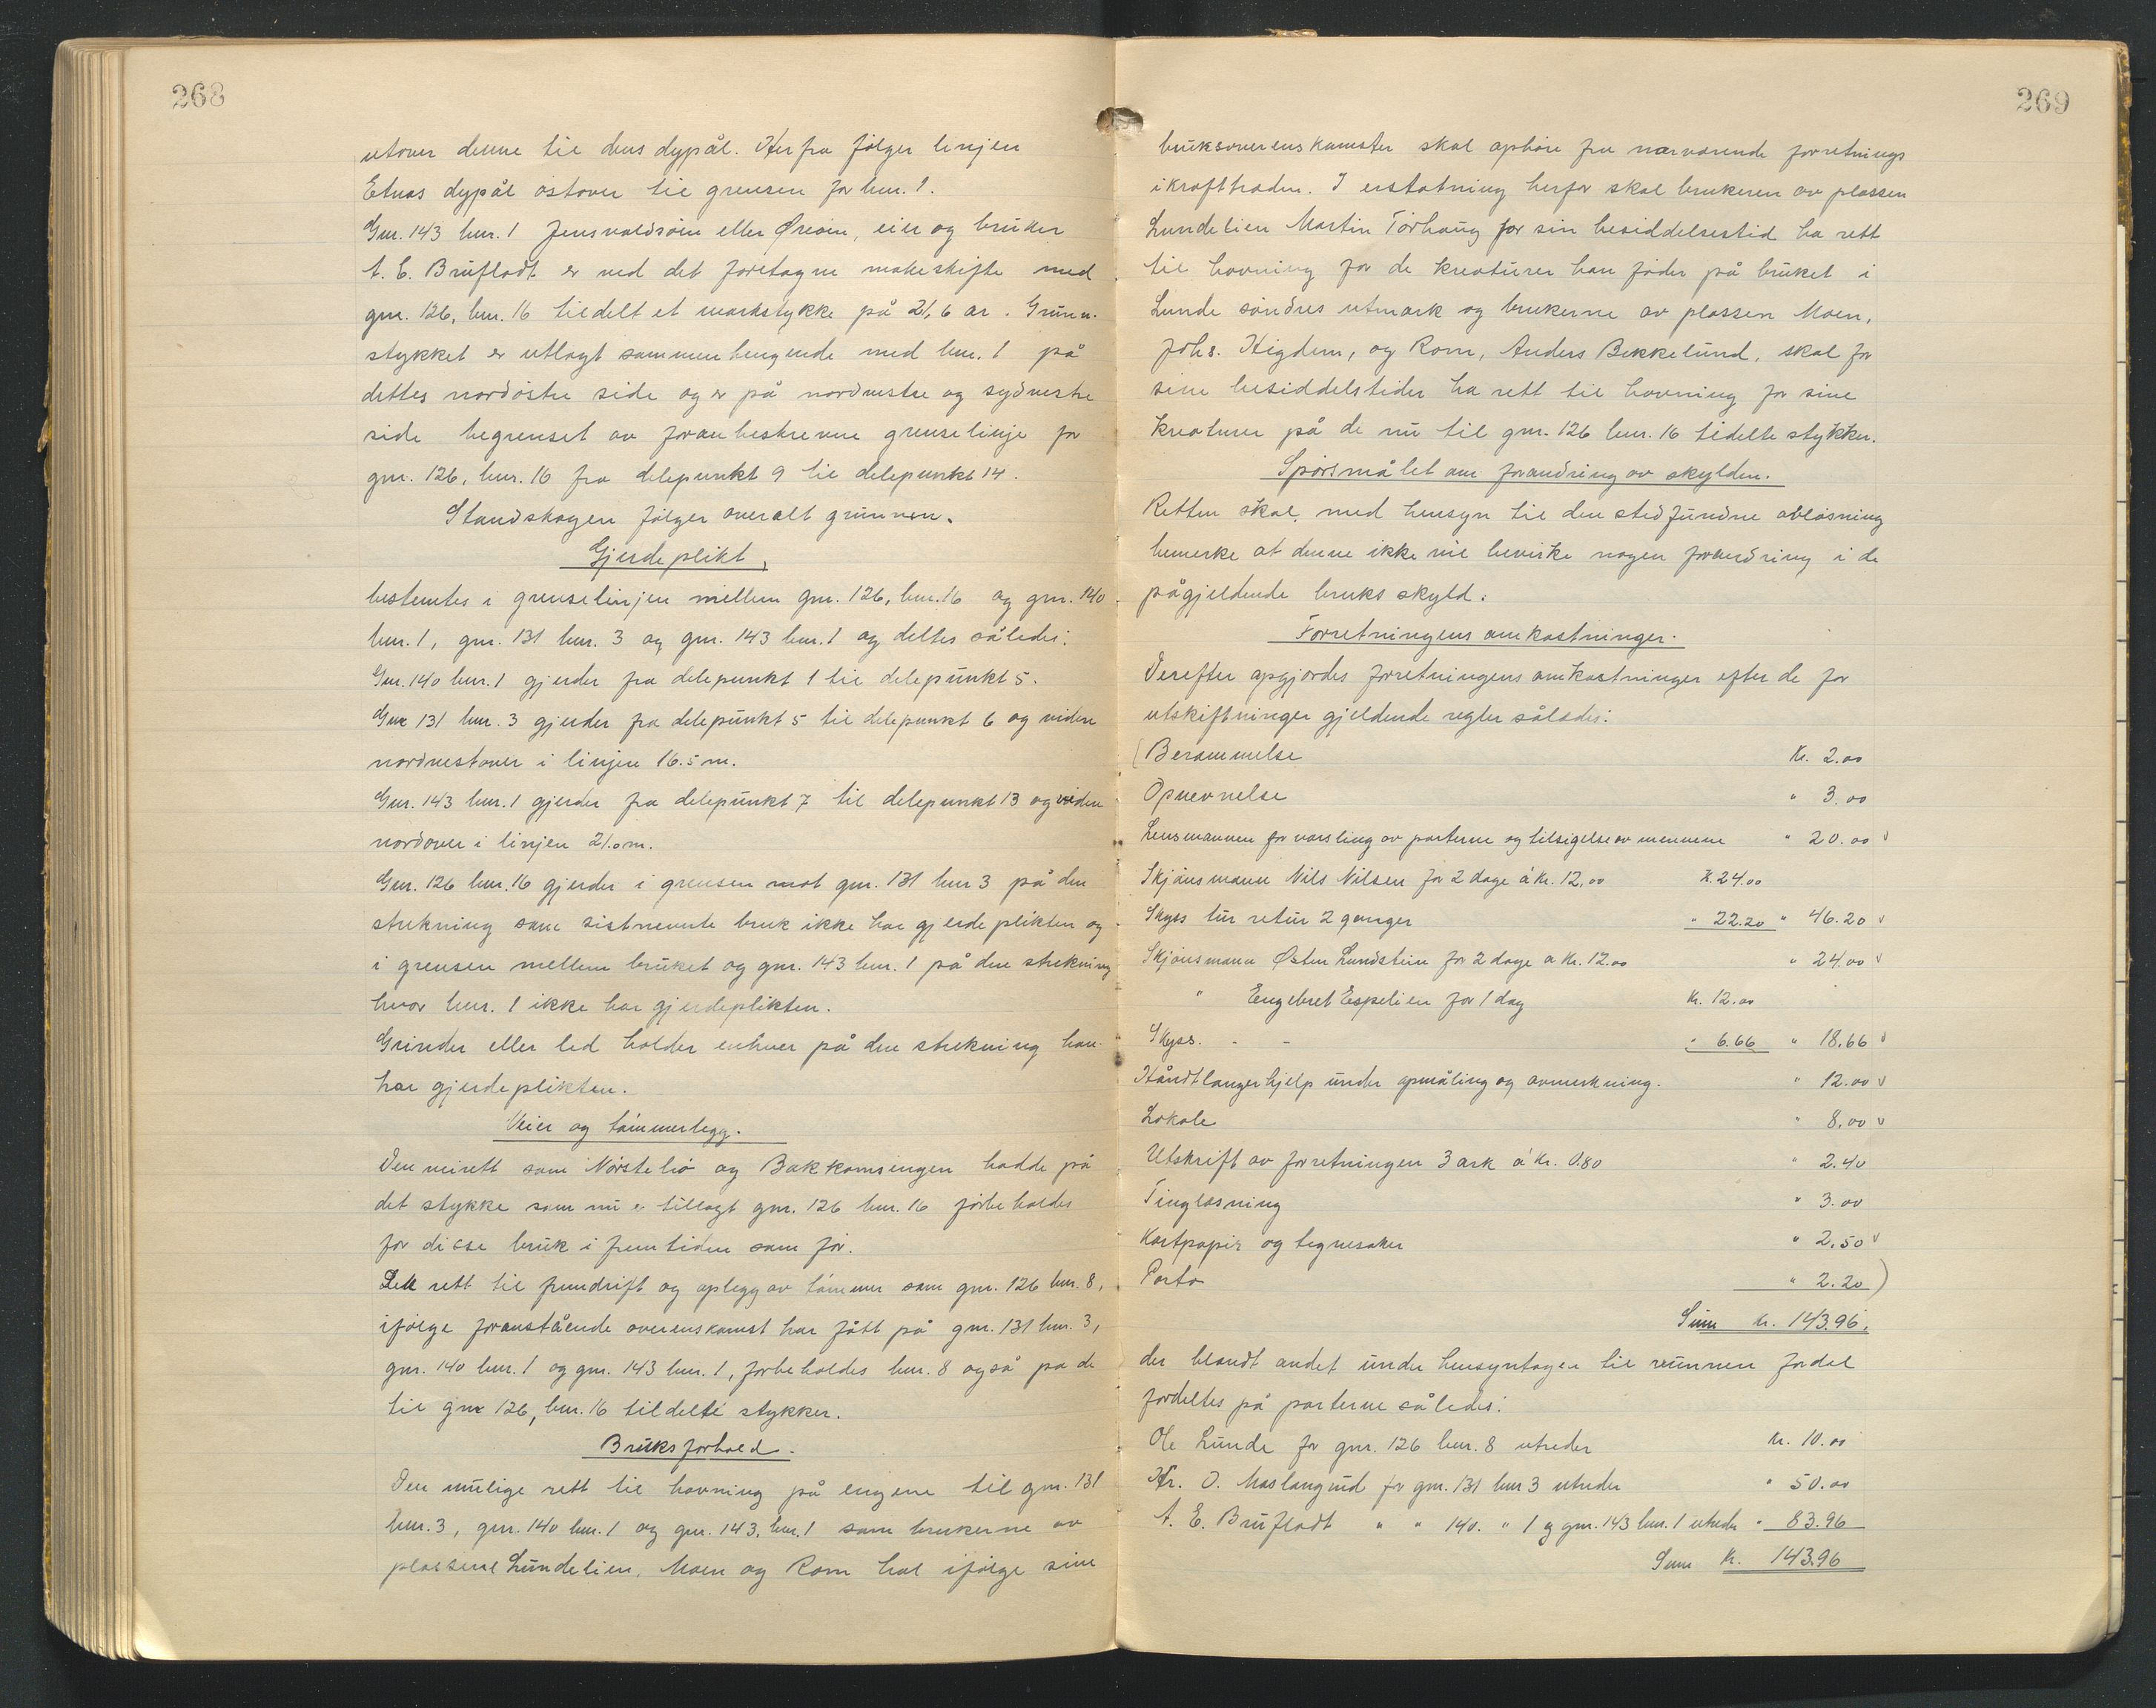 268
utover denne til dens dypål. Herfra følger linjen
Etnas dypål østover til grensen for bnr. 1.
Gnr. 143 bnr. 1 Jensvoldsøin eller Øreøin, eier og bruker
A. E. Bruflodt er ved det foretagne makeskifte med
gnr. 126, bnr. 16 tildelt et markstykke på 21,6 ar. Grunn-
stykket er utlagt sammenhengende med bnr. 1 på
dettes nordøstre side og er på nordvestre og sydvestre
side begrenset av foranbeskrevne grenselinje for
gnr. 126, bnr. 16 fra delepunkt 9 til delepunkt 14.
Standskogen følger overalt grunnen.
Gjerdeplikt,
bestemtes i grenselinjen mellem gnr. 126, bnr. 16 og gnr. 140
bnr. 1, gnr. 131 bnr. 3 og gnr. 143 bnr. 1 og deltes således:
Gnr. 140 bnr. 1 gjerder fra delepunkt 1 til delepunkt 5.
Gnr 131 bnr. 3 gjerder fra delepunkt 5 til delepunkt 6 og videre
nordvestover i linjen 16.5 m.
Gnr. 143 bnr. 1 gjerder fra delepunkt 7 til delepunkt 13 og videre
nordover i linjen 21.0 m.
Gnr. 126 bnr. 16 gjerder i grensen mot gnr. 131 bnr 3 på den
strekning som sistnevnte bruk ikke har gjerdeplikten og
i grensen mellem bruket og gnr. 143 bnr. 1 på den strekning
hvor bnr. 1 ikke har gjerdeplikten.
Grinder eller led holder enhver på den strekning han
har gjerdeplikten.
Veier og tømmerlegg.
Den veirett som Nørsteliø og Bakkomsengen hadde på
det stykke som nu er tillagt gnr. 126 bnr. 16 forbeholdes
for disse bruk i fremtiden som før.
Den rett til fremdrift og oplegg av tømmer som gnr. 126 bnr. 8,
ifølge foranstående overenskomst har fått på gnr. 131 bnr. 3,
gnr. 140 bnr. 1 og gnr. 143 bnr. 1, forbeholdes bnr. 8 også på de
til gnr 126, bnr. 16 tildelte stykker.
Bruksforhold.
Den mulige rett til havning på engene til gnr. 131
bnr. 3, gnr. 140 bnr. 1 og gnr. 143, bnr. 1 som brukerne av
plassene Lundelien, Moen og Rom har ifølge sine
269
bruksoverenskomster skal ophøre fra nærværende forretnings
ikrafttræden. I erstatning herfor skal brukeren av plassen
Lundelien Martin Torhaug for sin besiddelsestid ha rett
til havning for de kreaturer han føder på bruket i
Lunde søndres utmark og brukerne av plassen Moen,
Johs. Higdem, og Rom, Anders Bekkelund, skal for
sine besiddelstider ha rett til havning for sine
kreaturer på de nu til gnr. 126 bnr. 16 tidelte stykker.
Spørsmålet om forandring av skylden.
Retten skal, med hensyn til den stedfundne avløsning
bemerke at denne ikke vil bevirke nogen forandring i de
pågjeldende bruks skyld.
Forretningens omkostninger.
Derefter opgjordes forretningens omkostninger efter de for
utskiftninger gjeldende regler således:
(Berammelse Kr. 2.00
Opnevnelse " 3.00
Lensmannen for varsling av parterne og tilsigelse av mennene " 20.00 v
Skjønsmann Nils Nilsen for 2 dage á Kr. 12,00 K. 24.00
Skyss tur retur 2 ganger " 22.20 " 46.20 v
Skjønsmann Østen Lundstein for 2 dage a Kr. 12.00 " 24.00 v
" Engebret Espelien for 1 dag Kr. 12.00
Skyss. - - " 6.66 " 18.66 v
Håndtlangerhjelp under opmåling og avmerkning. " 12.00 v
Lokale " 8.00 v
Utskrift av forretningen 3 ark á Kr. 0.80 " 2.40
Tinglæsning " 3.00
Kartpapir og tegnesaker " 2.50 v
Porto " 2.20 )
Sum kr. 143.96.
der blandt andet under hensyntagen til vunnen fordel
fordeltes på parterne således:
Ole Lunde for gnr. 126 bnr. 8 utreder Kr. 10.00
Kr. O. Maslangrud for gnr. 131 bnr 3 utreder " 50.00
A. E. Bruflodt " " 140. " 1 og gnr. 143 bnr. 1 utreder " 83.96
Sum Kr. 143.96